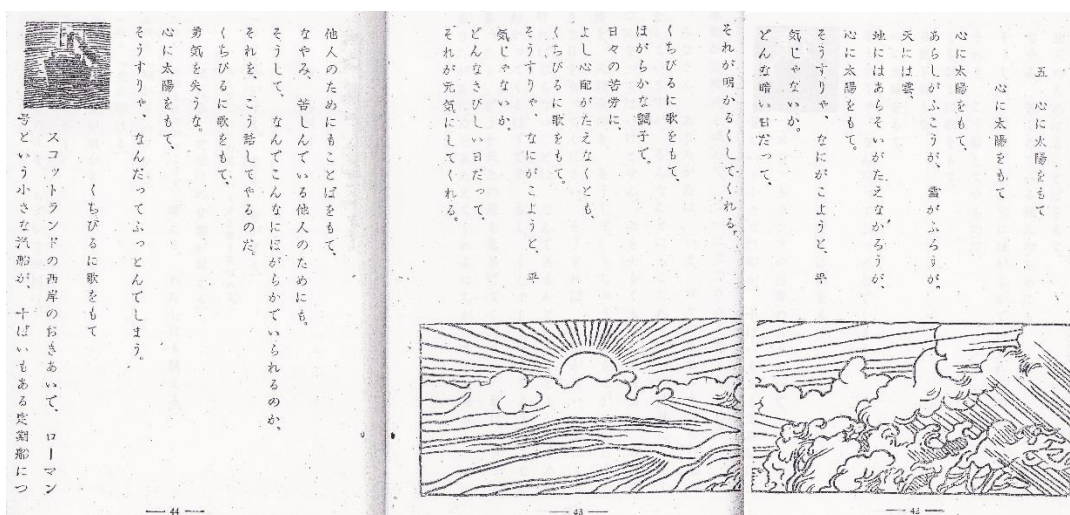 五　心に太陽をもて
心に太陽をもて
心に太陽をもて、
あらしがふこうが、雪がふろうが。
天には雲、
地にはあらそいがたえなかろうが、
心に太陽をもて。
そうすりゃ、なにがこようと、平
気じゃないか。
どんな暗い日だって、
— 42 —
それが明かるくしてくれる。
くちびるに歌をもて、
ほがらかな調子で。
日々の苦労に、
よし心配がたえなくとも、
くちびるに歌をもて。
そうすりゃ、なにがこようと、平
気じゃないか。
どんなさびしい日だって、
それが元気にしてくれる。
— 43 —
他人のためにもことばをもて、
なやみ、苦しんでいる他人のためにも。
そうして、なんでこんなにほがらかでいられるのか、
それを、こう話してやるのだ。
くちびるに歌をもて、
勇気を失うな。
心に太陽をもて、
そうすりゃ、なんだってふっとんでしまう。
くちびるに歌をもて
スコットランドの西岸のおきあいで、ローマン
号という小さな汽船が、十ばいもある定期船につ
— 44 —